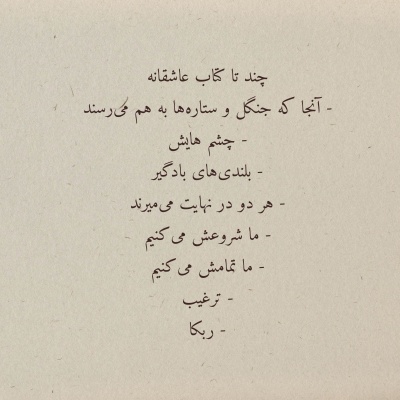 چند تا کتاب عاشقانه
- آنجا که جنگل و ستاره‌ها به هم می‌رسند
- چشم هایش
- بلندی‌های بادگیر
- هر دو در نهایت می‌میرند
- ما شروعش می‌کنیم
- ما تمامش می‌کنیم
- ترغیب
- ربکا